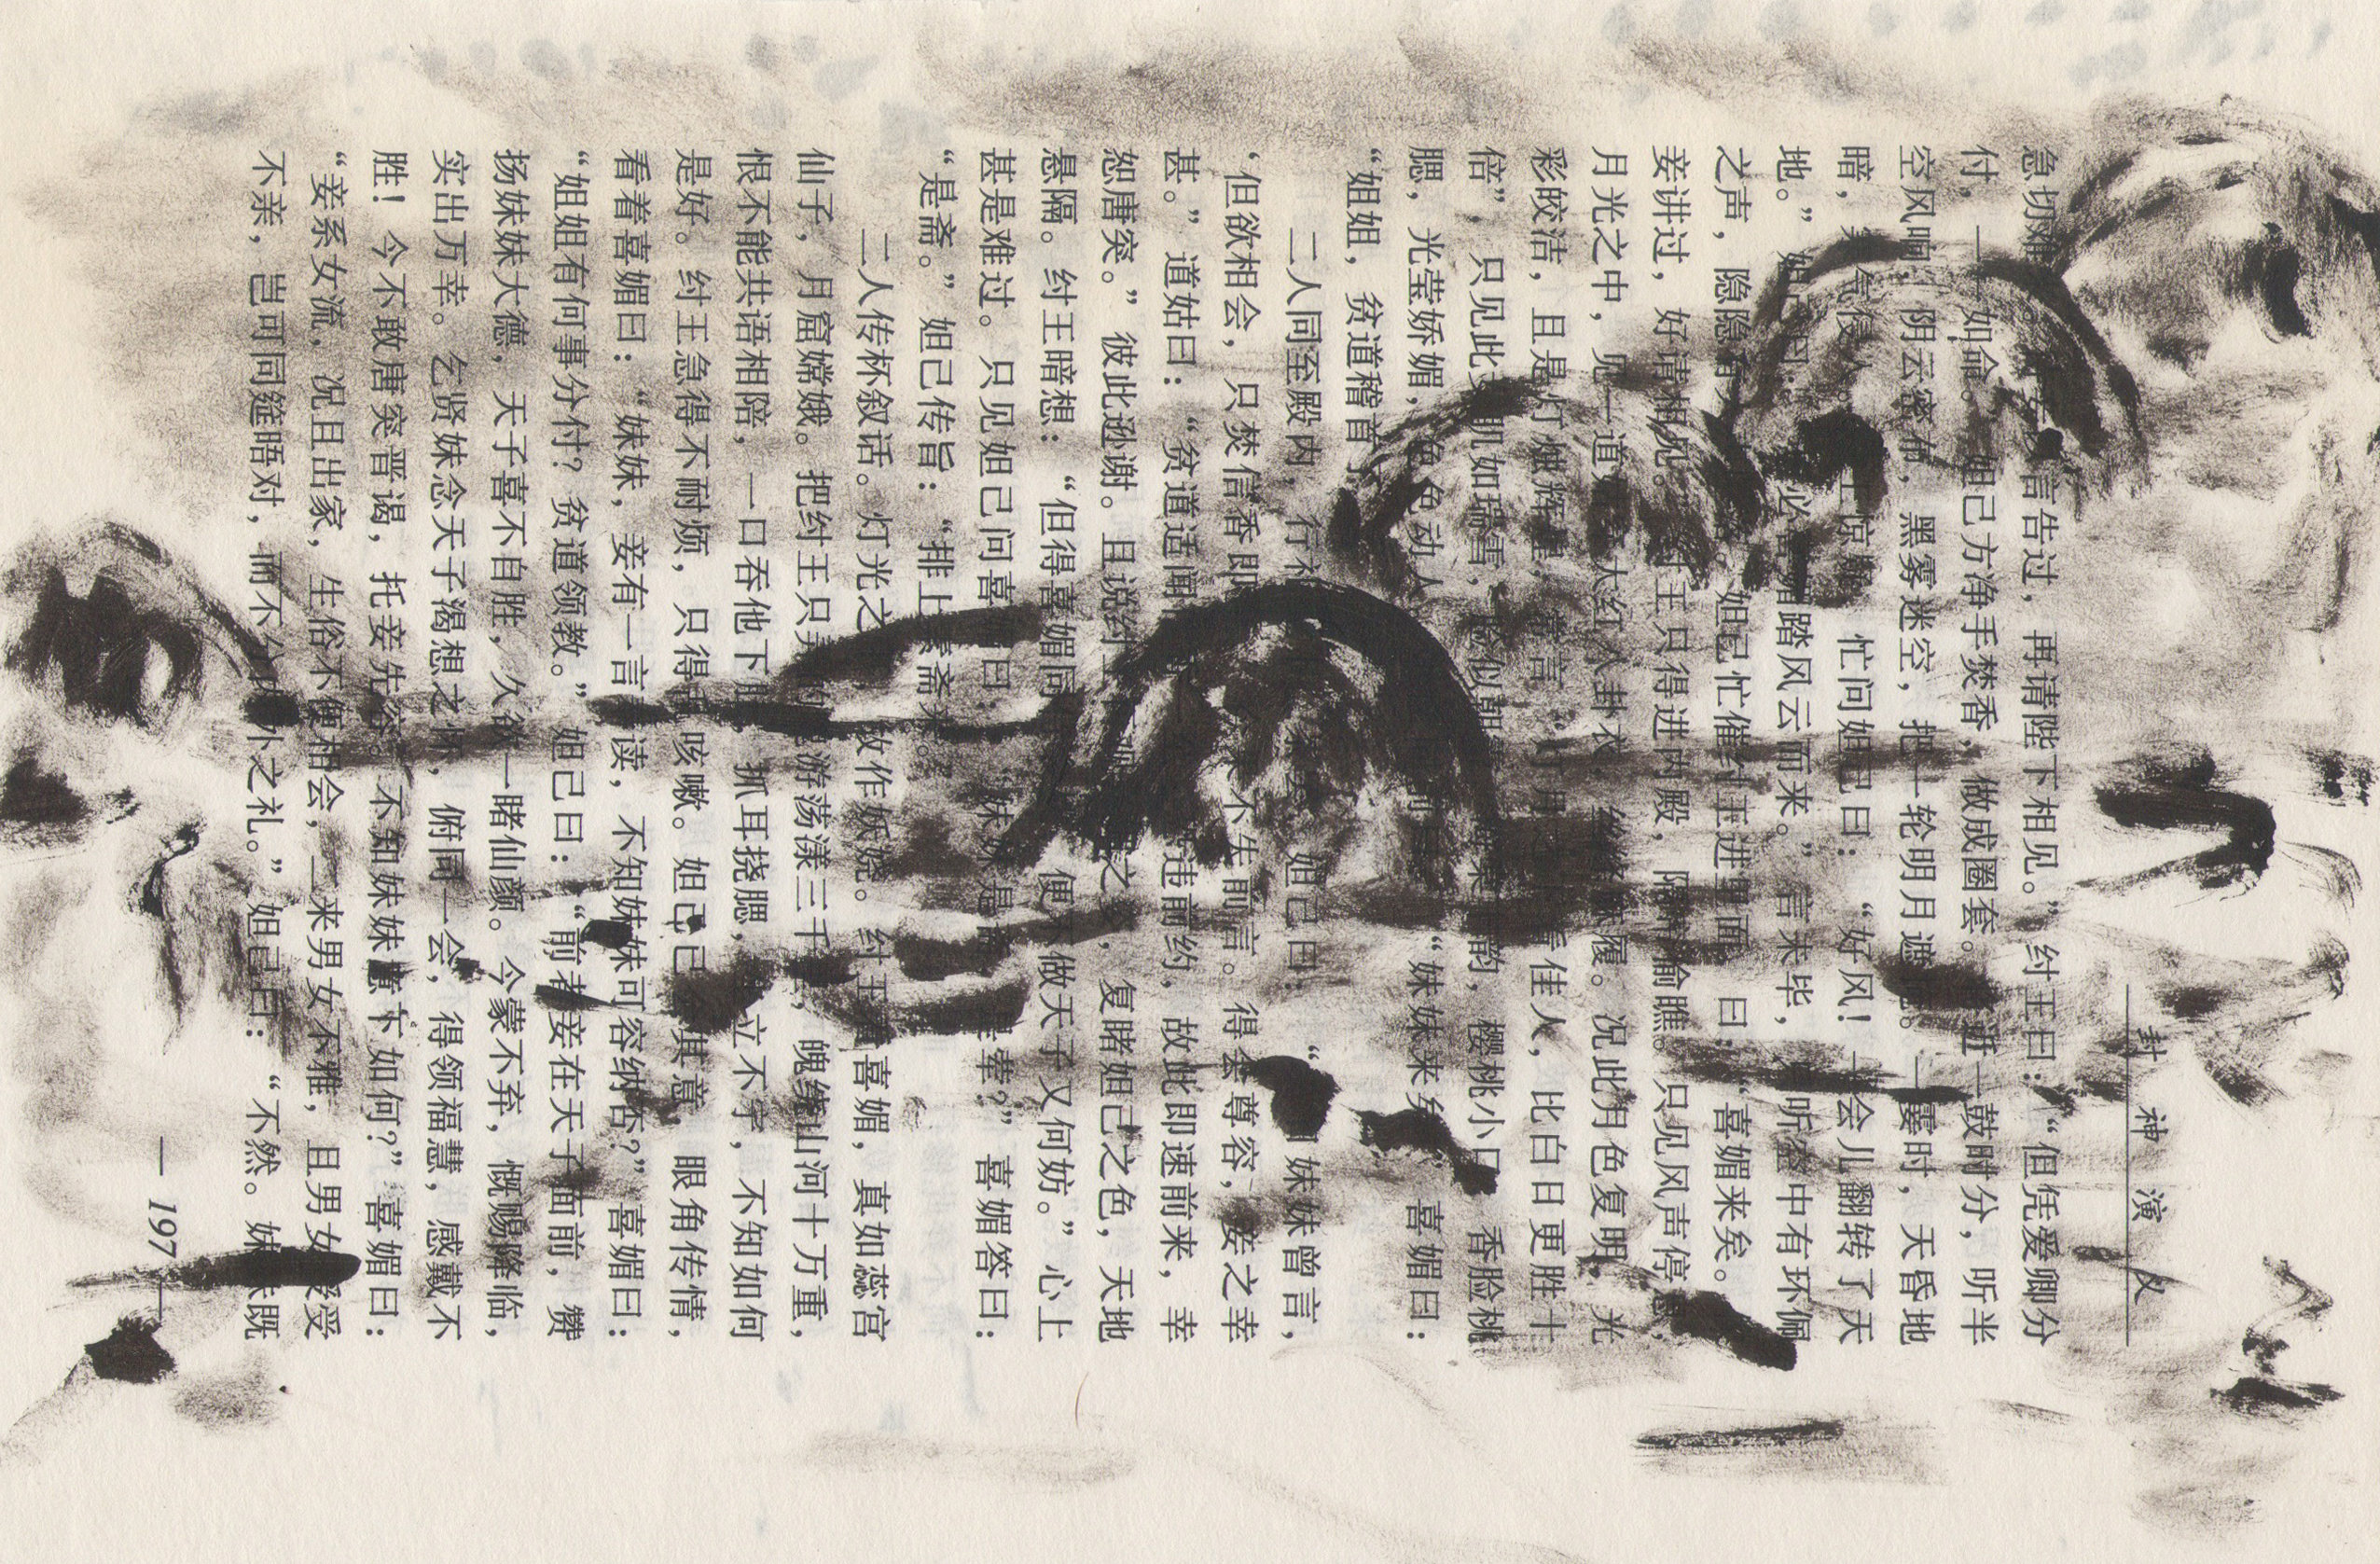 封神演义
急切难 言告过，再请陛下相见。”纣王曰：“但凭爱卿分
付，一一如命。”妲己方净手焚香，做成圈套。 近一鼓时分，听半
空风响，阴云密布，黑雾迷空，把一轮明月遮 。一霎时，天昏地
暗，寒气侵人。 王惊 忙问妲己曰：“好风！一会儿翻转了天
地。”妲己曰： 必喜媚踏风云而来。”言未毕， 听空中有环佩
之声，隐隐有 妲己忙催纣王进里面 曰：“喜媚来矣。
妾讲过，好请相见。”纣王只得进内殿，隔 偷瞧。只见风声停息，
月光之中，见一道姑 大红八卦衣，丝绦 履。况此月色复明，光
彩皎洁，且是灯烛辉煌，常言“灯月 佳人，比白日更胜十
倍”，只见此 肌如瑞雪，脸似朝 韵，樱桃小口，香脸桃
腮，光莹娇媚， 色动人 “妹妹来矣 喜媚曰：
“姐姐，贫道稽首
二人同至殿内，行礼 妲己曰：“ 妹妹曾言，
‘但欲相会，只焚信香即 不失前言。得会尊容，妾之幸
甚。”道姑曰：“贫道适闻 违前约，故此即速前来，幸
恕唐突。”彼此逊谢。且说纣 之 ，复睹妲己之色，天地
悬隔。纣王暗想：“但得喜媚同 便不做天子又何妨。”心上
甚是难过。只见妲己问喜媚曰： “妹妹是 荤？”喜媚答曰：
“是斋。”妲己传旨：“排上素斋来。”
二人传杯叙话。灯光之 故作妖娆。纣王 喜媚，真如蕊宫
仙子，月窟嫦娥。把纣王只弄 游荡漾三千 魄绕山河十万重，
恨不能共语相陪，一口吞他下 抓耳挠腮， 立不宁，不知如何
是好。纣王急得不耐烦，只得 咳嗽。妲己已 其意，眼角传情，
看着喜媚曰：“妹妹，妾有一言 读，不知妹妹可容纳否？”喜媚曰：
“姐姐有何事分付？贫道领教。”妲己曰：“前者妾在天子面前，赞
扬妹妹大德，天子喜不自胜，久欲一睹仙颜。今蒙不弃，慨赐降临，
实出万幸。乞贤妹念天子渴想之怀，俯同一会，得领福慧，感戴不
胜！今不敢唐突晋谒，托妾先容。不知妹妹意下如何？”喜媚曰：
“妾系女流，况且出家，生俗不便相会，二来男女不雅，且男女 受
不亲，岂可同筵晤对，而不分内外之礼。”妲己曰：“不然。妹妹既
— 197 —